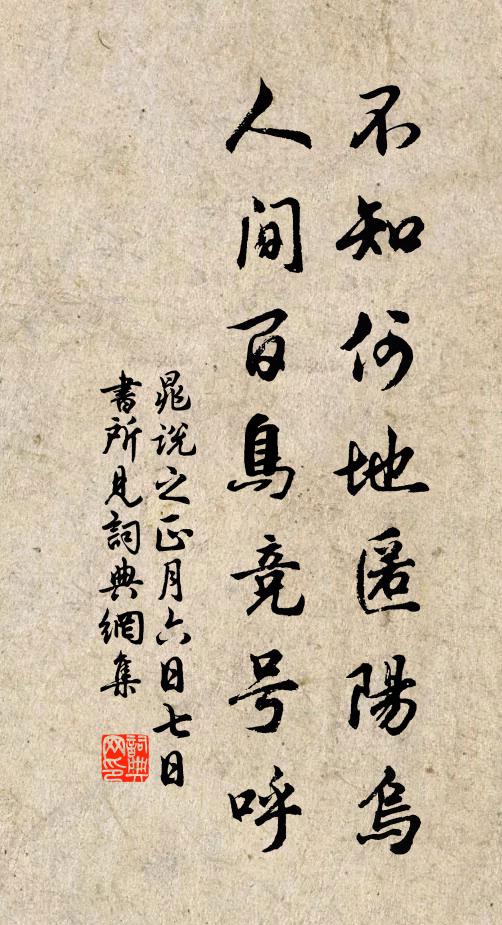 不知何地匿陽烏
人間百鳥竞号呼
晁说之正月六日七日
書所見詞典網集
詞典网印